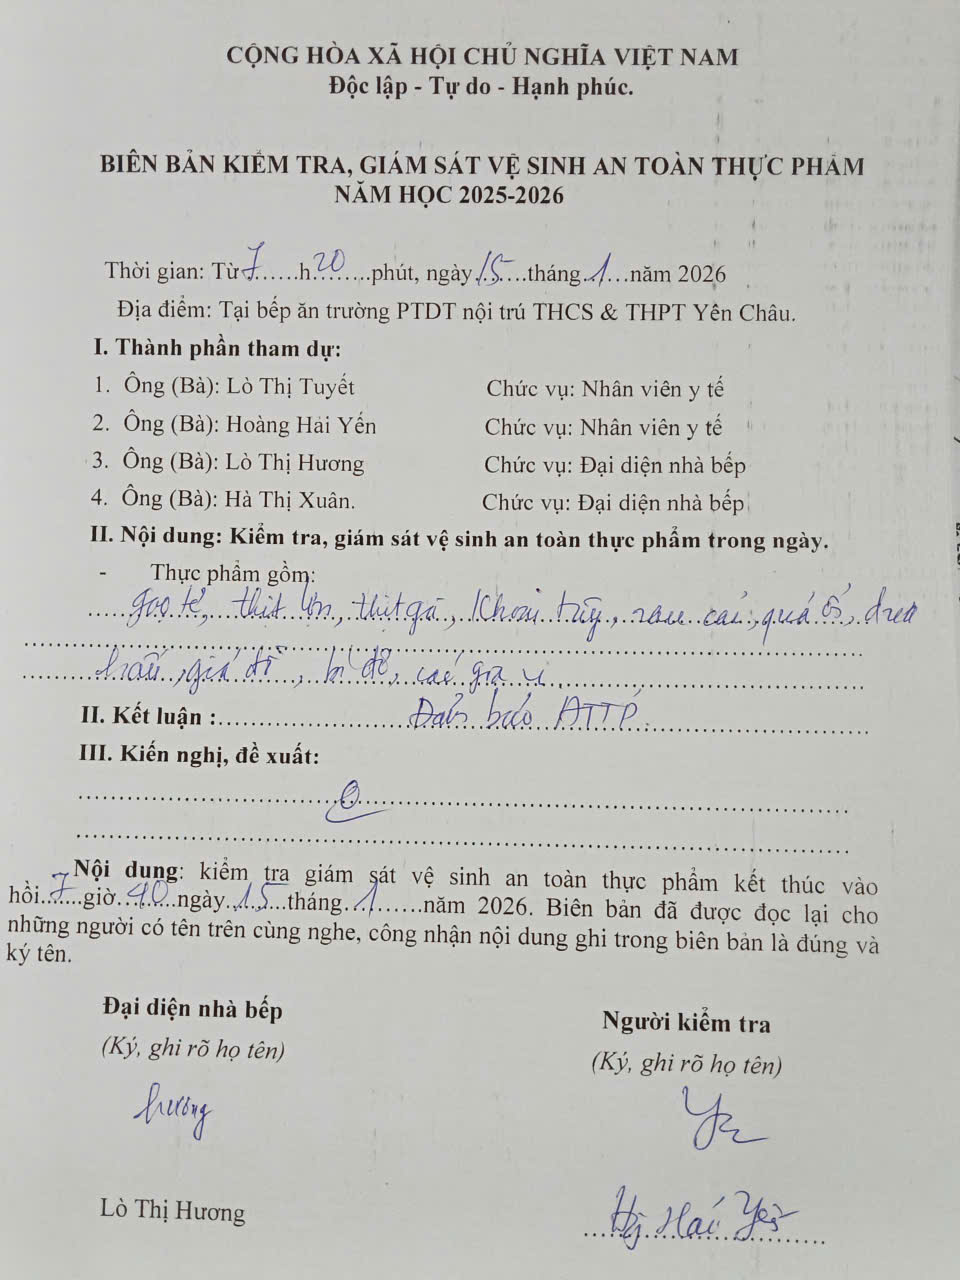 CỘNG HÒA XÃ HỘI CHỦ NGHĨA VIỆT NAM
Độc lập - Tự do - Hạnh phúc.
BIÊN BẢN KIỂM TRA, GIÁM SÁT VỆ SINH AN TOÀN THỰC PHẨM
NĂM HỌC 2025-2026
Thời gian: Từ 7 h 20 phút, ngày 15 tháng 1 năm 2026
Địa điểm: Tại bếp ăn trường PTDT nội trú THCS & THPT Yên Châu.
I. Thành phần tham dự:
1. Ông (Bà): Lò Thị Tuyết Chức vụ: Nhân viên y tế
2. Ông (Bà): Hoàng Hải Yến Chức vụ: Nhân viên y tế
3. Ông (Bà): Lò Thị Hương Chức vụ: Đại diện nhà bếp
4. Ông (Bà): Hà Thị Xuân. Chức vụ: Đại diện nhà bếp
II. Nội dung: Kiểm tra, giám sát vệ sinh an toàn thực phẩm trong ngày.
- Thực phẩm gồm:
gạo tẻ, thịt lợn, thịt gà, Khoai tây, rau cải, quả ổi, dưa
hấu, giá đỗ, bí đỏ, các gia vị
II. Kết luận : Đảm bảo ATTP.
III. Kiến nghị, đề xuất:
0
Nội dung: kiểm tra giám sát vệ sinh an toàn thực phẩm kết thúc vào
hồi 7 giờ 40 ngày 15 tháng 1 năm 2026. Biên bản đã được đọc lại cho
những người có tên trên cùng nghe, công nhận nội dung ghi trong biên bản là đúng và
ký tên.
Đại diện nhà bếp Người kiểm tra
(Ký, ghi rõ họ tên) (Ký, ghi rõ họ tên)
Hương
Lò Thị Hương Hải Yến